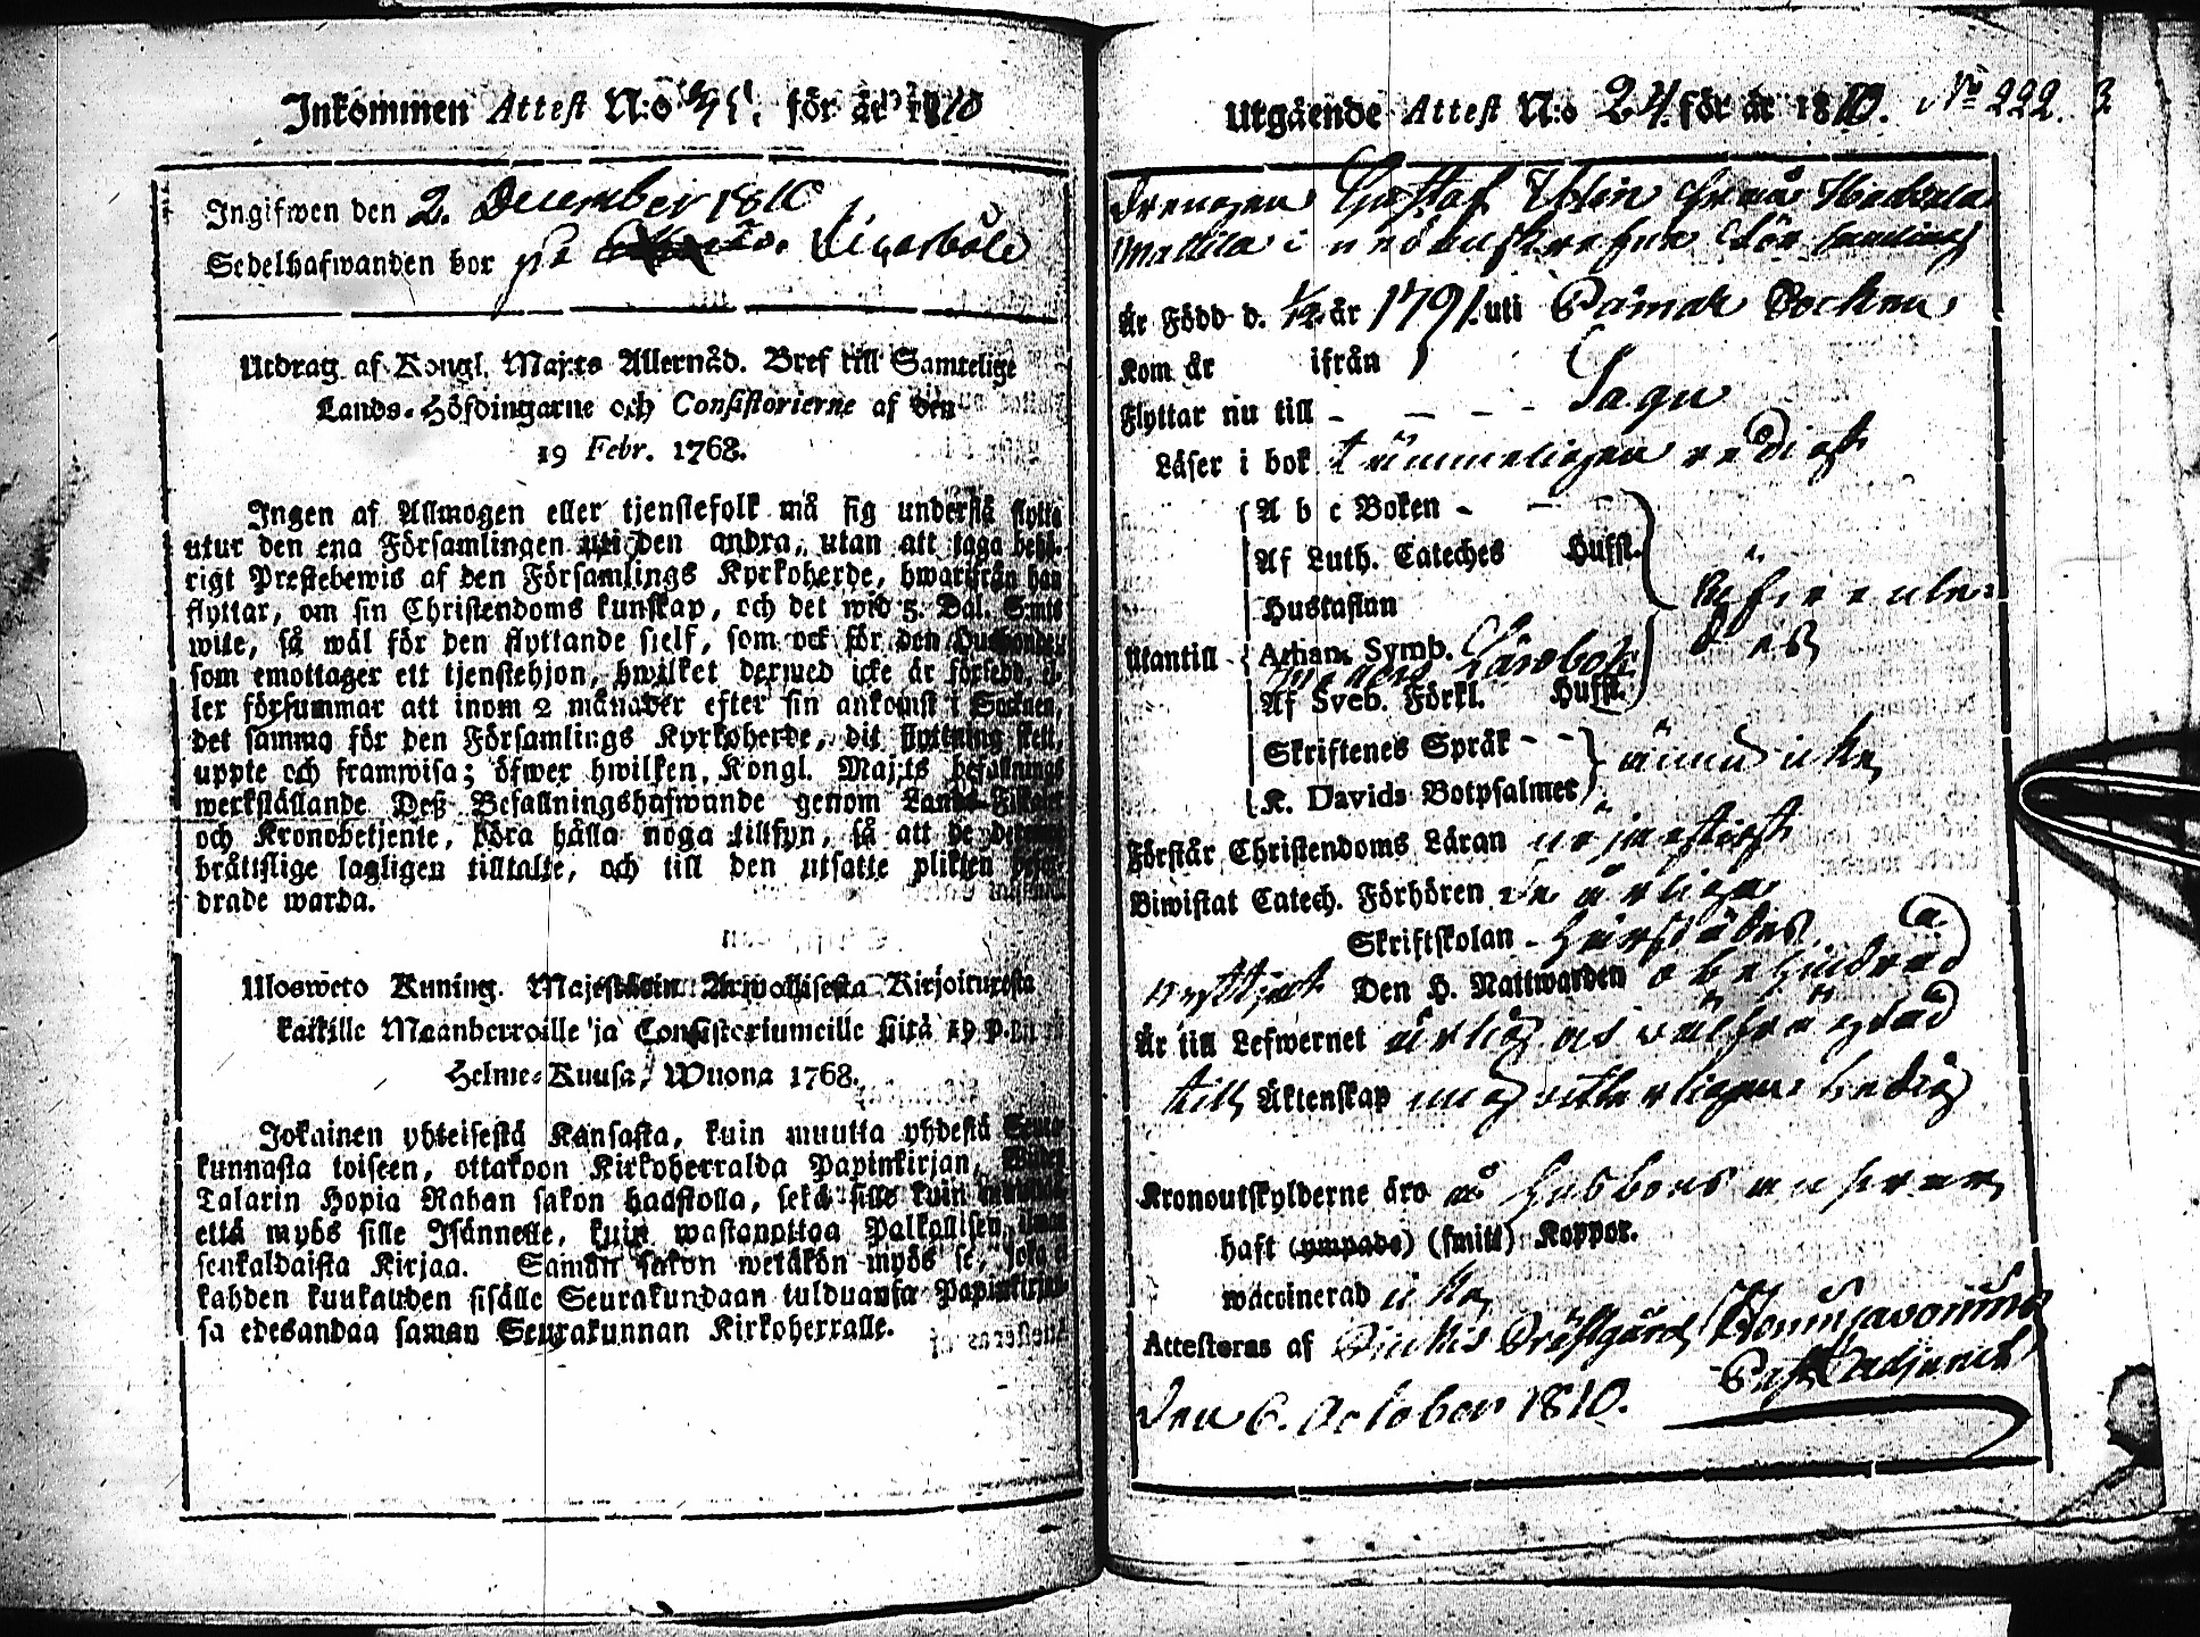 Inkommen Attest N:o för år 1810
Ingifwen den 2. December 1810
Sedelhafwanden bor på
Utdrag af Kongl. Maj:ts Allernåd. Bref till Samtelige
Lands-Höfdingarne och Consistorierne af den
19 Febr. 1768.
Ingen af Allmogen eller tjenstefolk må sig understå flytta
utur den ena Församlingen uti den andra, utan att taga behö-
rigt Prestebewis af den Församlings Kyrkoherde, hwarifrån han
flyttar, om sin Christendoms kunskap, och det wid 5. Dal. S:mts
wite, så wäl för den flyttande sjelf, som ock för den Husbonden
som emottager ett tjenstehjon, hwilket dermed icke är försedd, el-
ler försummar att inom 2 månader efter sin ankomst i Socknen,
det samma för den Församlings Kyrkoherde, dit flyttning skett,
uppte och framwisa; öfwer hwilken, Kongl. Maj:ts befallnings
werkställande Deß Befallningshafwande genom Lands-Fiskaler
och Kronobetjente, böra hålla noga tillsyn, så att de
bråttslige lagligen tilltalte, och till den utsatte plikten
drade warda.
Ulosweto Kuning. Majestätin Armollisesta Kirjoituxesta
kaikille Maanherroille ja Consistoriumeille siitä 19 p:nä
Helme-Kuusa, Wuona 1768.
Jokainen yhteisestä Kansasta, kuin muutta yhdestä Seura-
kunnasta toiseen, ottakoon Kirkoherralda Papinkirjan, Wiiden
Talarin Hopia Rahan sakon haastolla, sekä sille kuin
että myös sille Isännelle, kuin wastanottaa Palkollisen, ilman
senkaldaista Kirjaa. Saman sakon wetäkön myös se, joka ei
kahden kuukauden sisälle Seurakundaan tulduansa Papinkirjan-
sa edesandaa saman Seurakunnan Kirkoherralle.
Utgående Attest N:o 24. för år 1810. No 222.
Drengen Gustaf från
Mattila i nedanskrefne Församling
Är Född d. 1/12 år 1791. uti Pämar Socken
Kom år ifrån
Flyttar nu till - - - - Sagu
Läser i bok tämmeligen redigt
A b c Boken - -
Af Luth. Cateches Hufst.
Hustaflan
Utantill Athan. Symb. Lärobok
Af Sveb. Förkl. Hufst.
Skriftenes Språk - - ännu icke
K. Davids Botpsalmer
Förstår Christendoms Läran nöjaktigt
Biwistat Catech. Förhören de årliga
Skriftskolan - härstädes
nyttjat Den H. Nattwarden obehindrad
Är till Lefwernet ärlig och wälfrägdad
till Äktenskap mig wetterligen ledig
Kronoutskylderne äro å husbondens
haft (ympade) (smitt) Koppor.
waccinerad icke
Attesteras af Prästgård
Past. adjunct
den 6. October 1810.